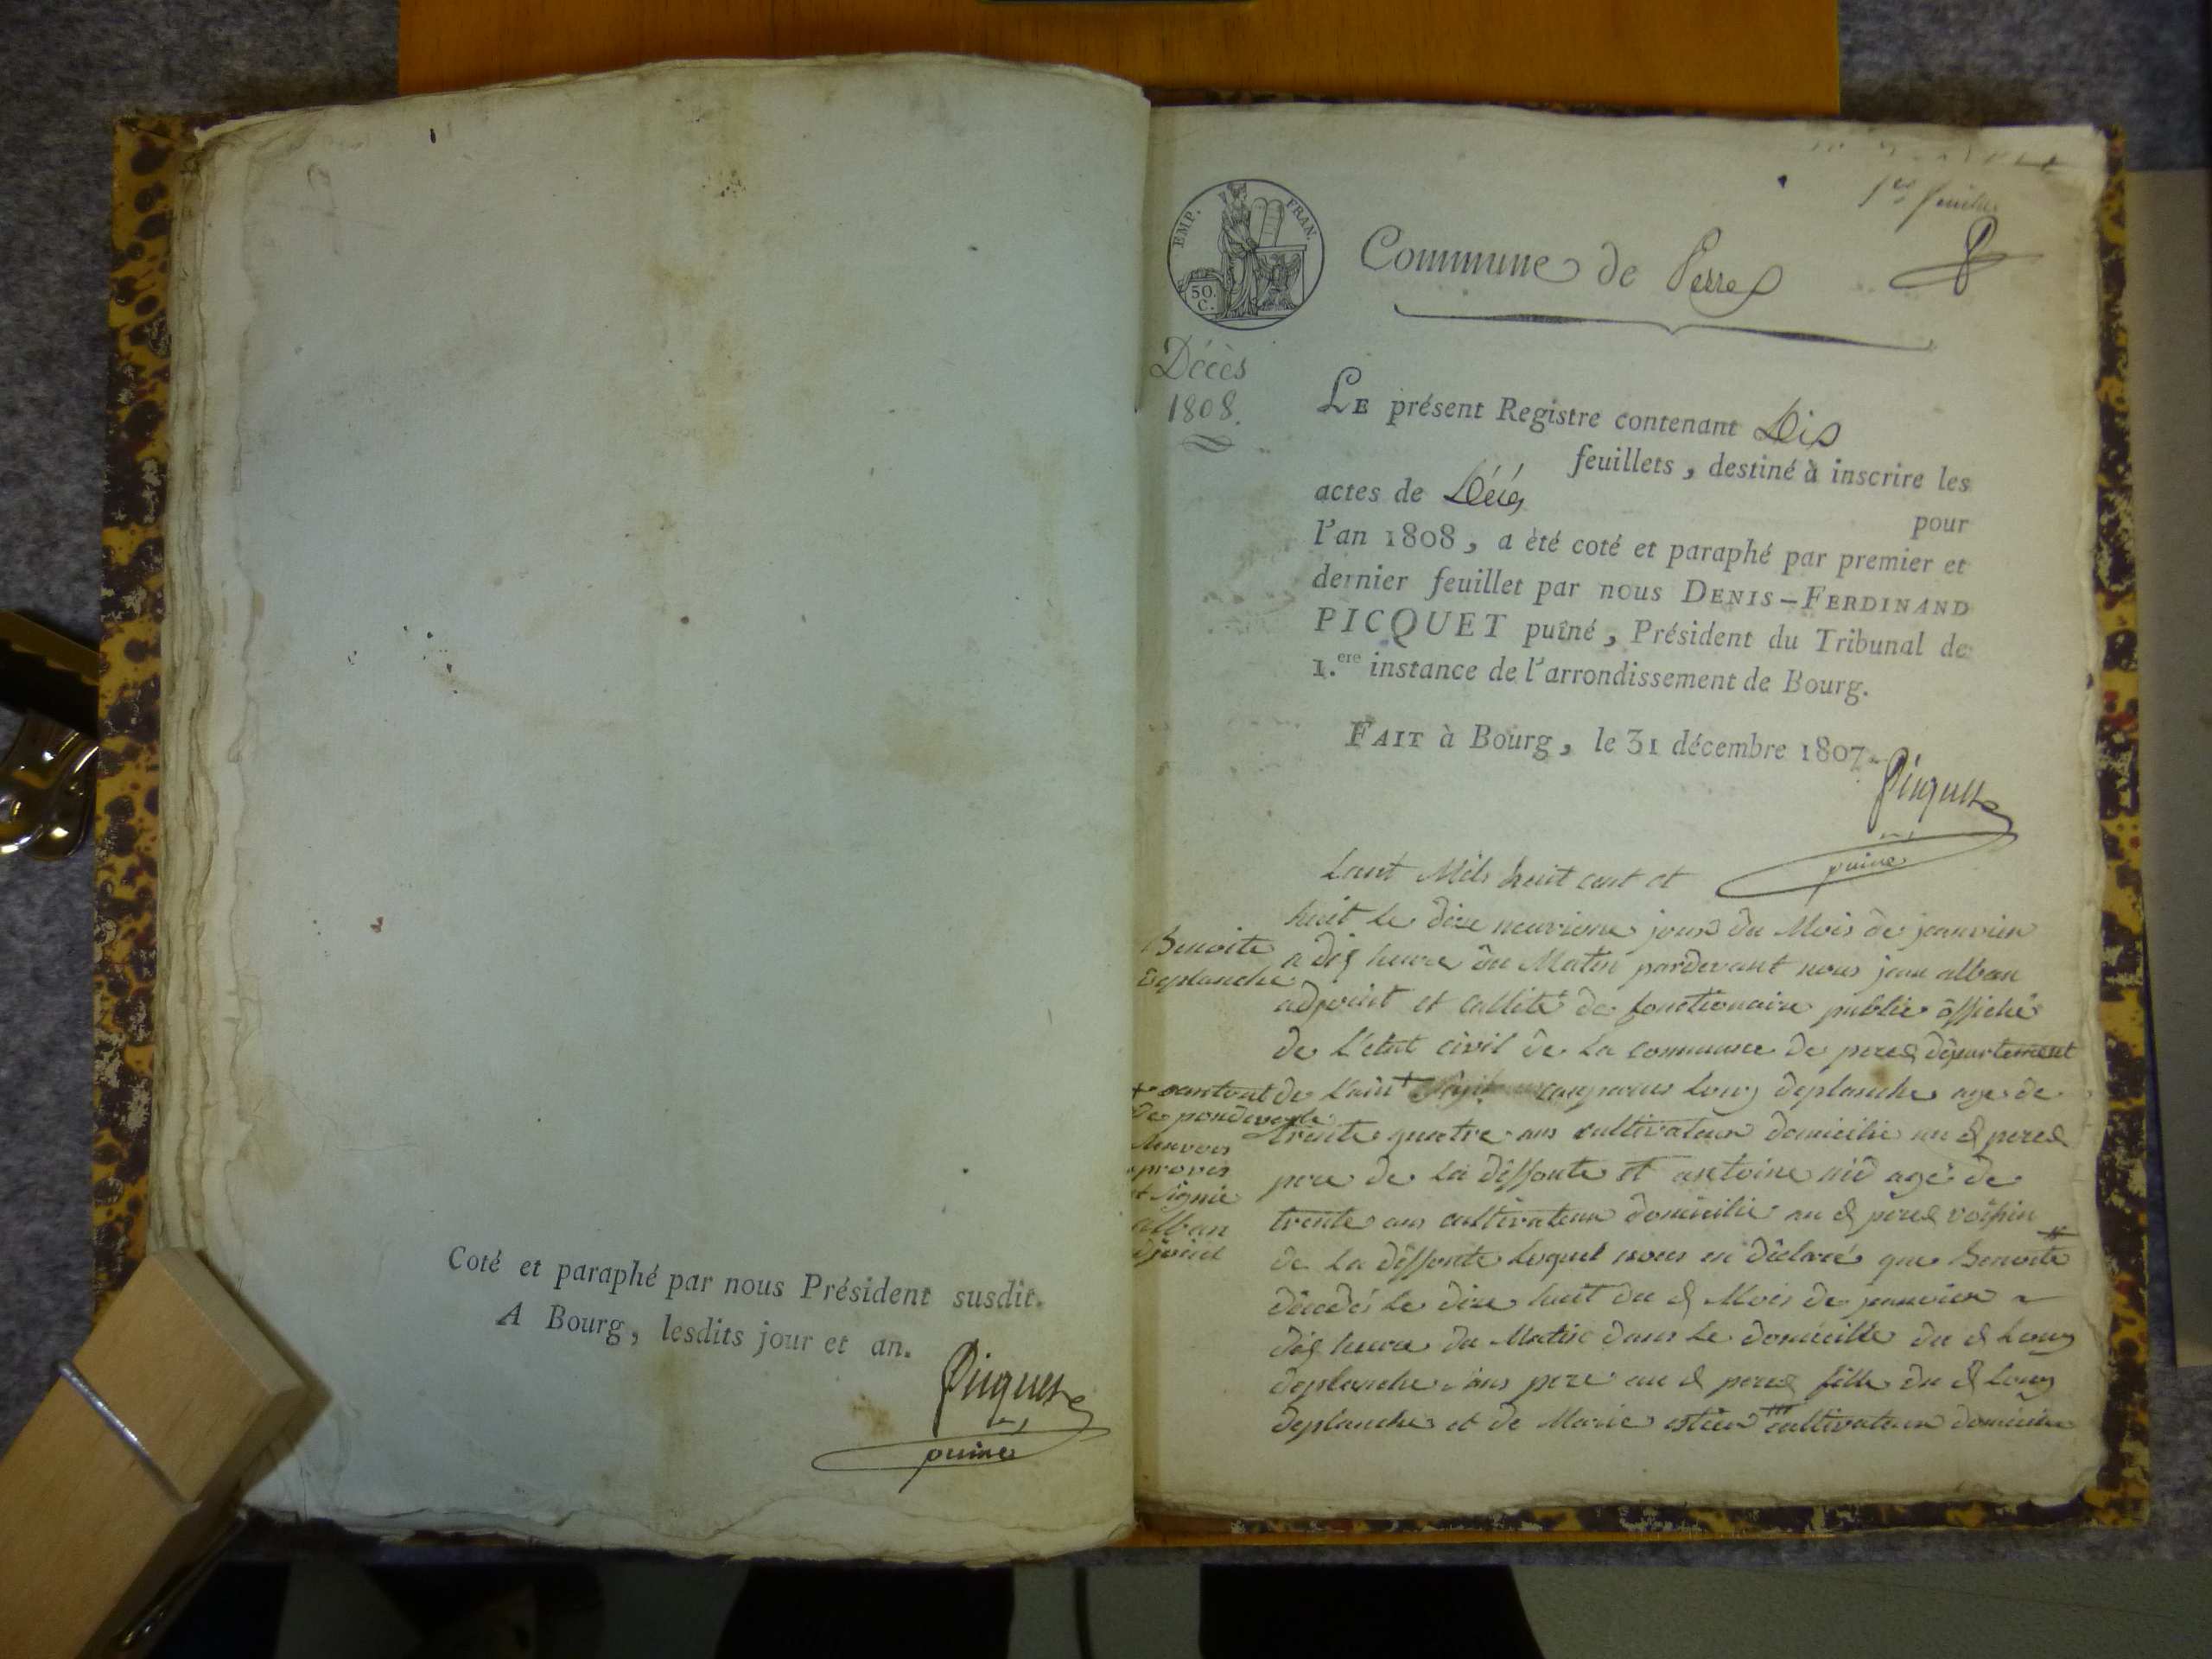 Coté et paraphé par nous Président susdit.
A Bourg, lesdits jour et an.
Picquet
puiné
1er feuillet
EMP. FRAN.
50.
C.
Commune de Perres
Décès
1808.
LE présent Registre contenant Dix
feuillets, destiné à inscrire les
actes de Décès
pour
l'an 1808, a été coté et paraphé par premier et
dernier feuillet par nous DENIS-FERDINAND
PICQUET puîné, Président du Tribunal de
1.ere instance de l'arrondissement de Bourg.
FAIT à Bourg, le 31 décembre 1807.
Picquet
puiné
Lant Mils huit cent et
huit le dixe neuvieme jour du Mois de janvier
a dix heure du Matin pardevant nous jean alban
adjoint et callité de fonctionaire public officié
de L'etat civil de la commune de peres département
de Lain + comparus Louis deplanche age de
trente quatre ans cultivateur domicilié au d peres
pere de la deffonte et antoine nid agé de
trente ans cultivateur domicilié au d peres voisin
de la deffonte lesquel nous on déclaré que Benoite #
décédés le dixe huit du d Mois de janvier a
dix heure du Matin dans le domicille du d Louis
deplanche sons pere au d peres fille du d Louis
deplanche et de Marie cultivateur domicilié
Benoite
Deplanche
+ canton
de pondevesle
Renvois
aprover
et signié
alban
adjoint